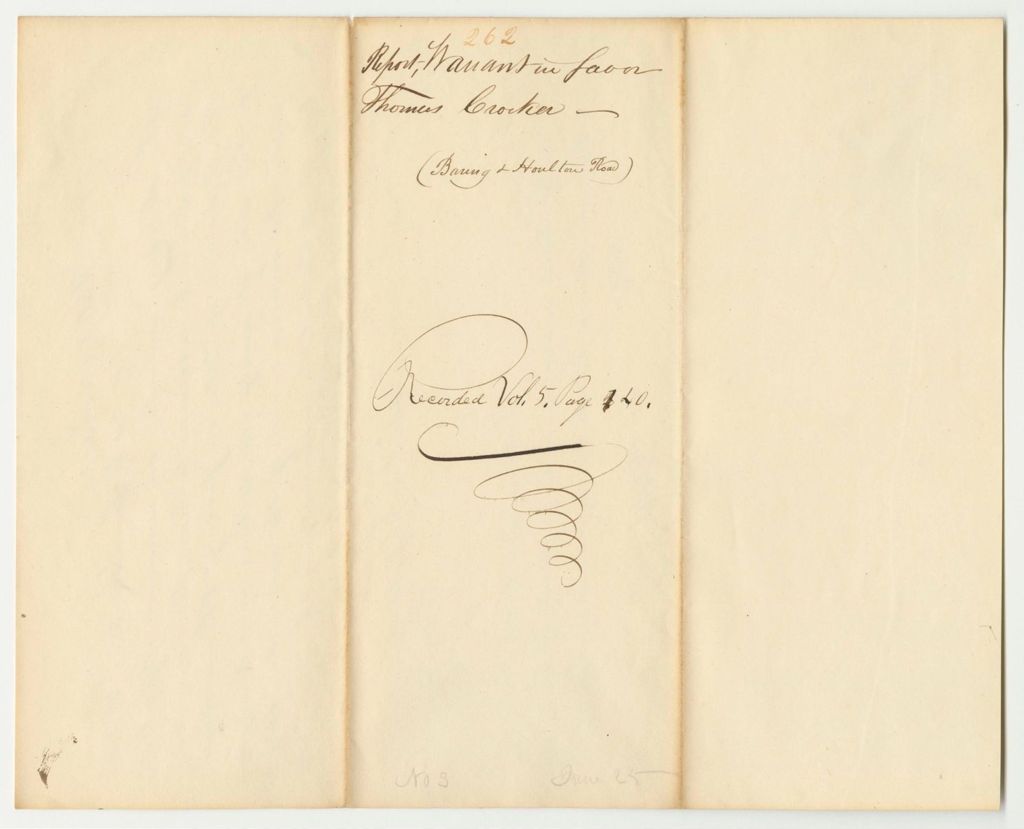 262
Report, Warrant in favor
Thomas Crocker —
(Baring & Houlton Road)
Recorded Vol. 5. Page 120.
No 3 June 25